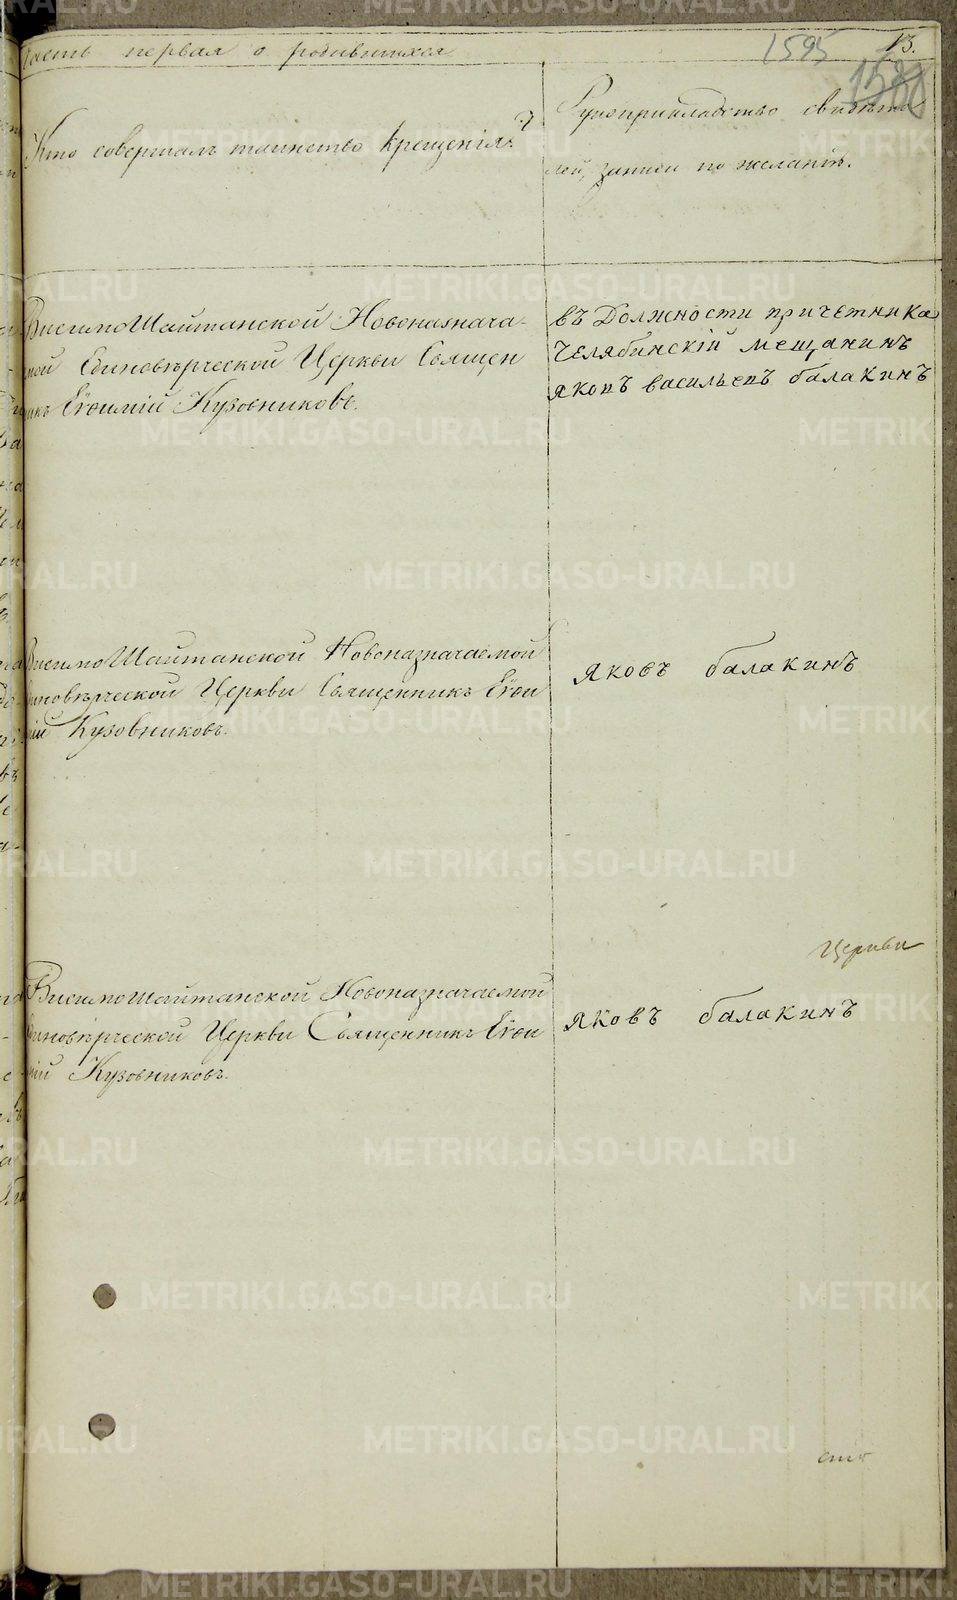 часть первая о родившихся
1595
13.
Кто совершалъ таинство крещенія?
Рукоприкладство свидѣте
лей, записи по желанію.
ВисимоШайтанской Новоназнача-
мой Единовѣрческой Церкви Священ
никъ Евѳимій Кузовниковъ.
въ Должности причетника
Челябинскій мещанинъ
яковъ васильевъ балакинъ
ВисимоШайтанской Новоназначаемой
диновѣрческой Церкви Священникъ Евѳи
мій Кузовниковъ.
яковъ балакинъ
Церкви
Висимошайтанской Новоназначаемой
диновѣрческой Церкви Священникъ Евѳи
мій Кузовниковъ.
яковъ балакинъ
METRIKI.GASO-URAL.RU